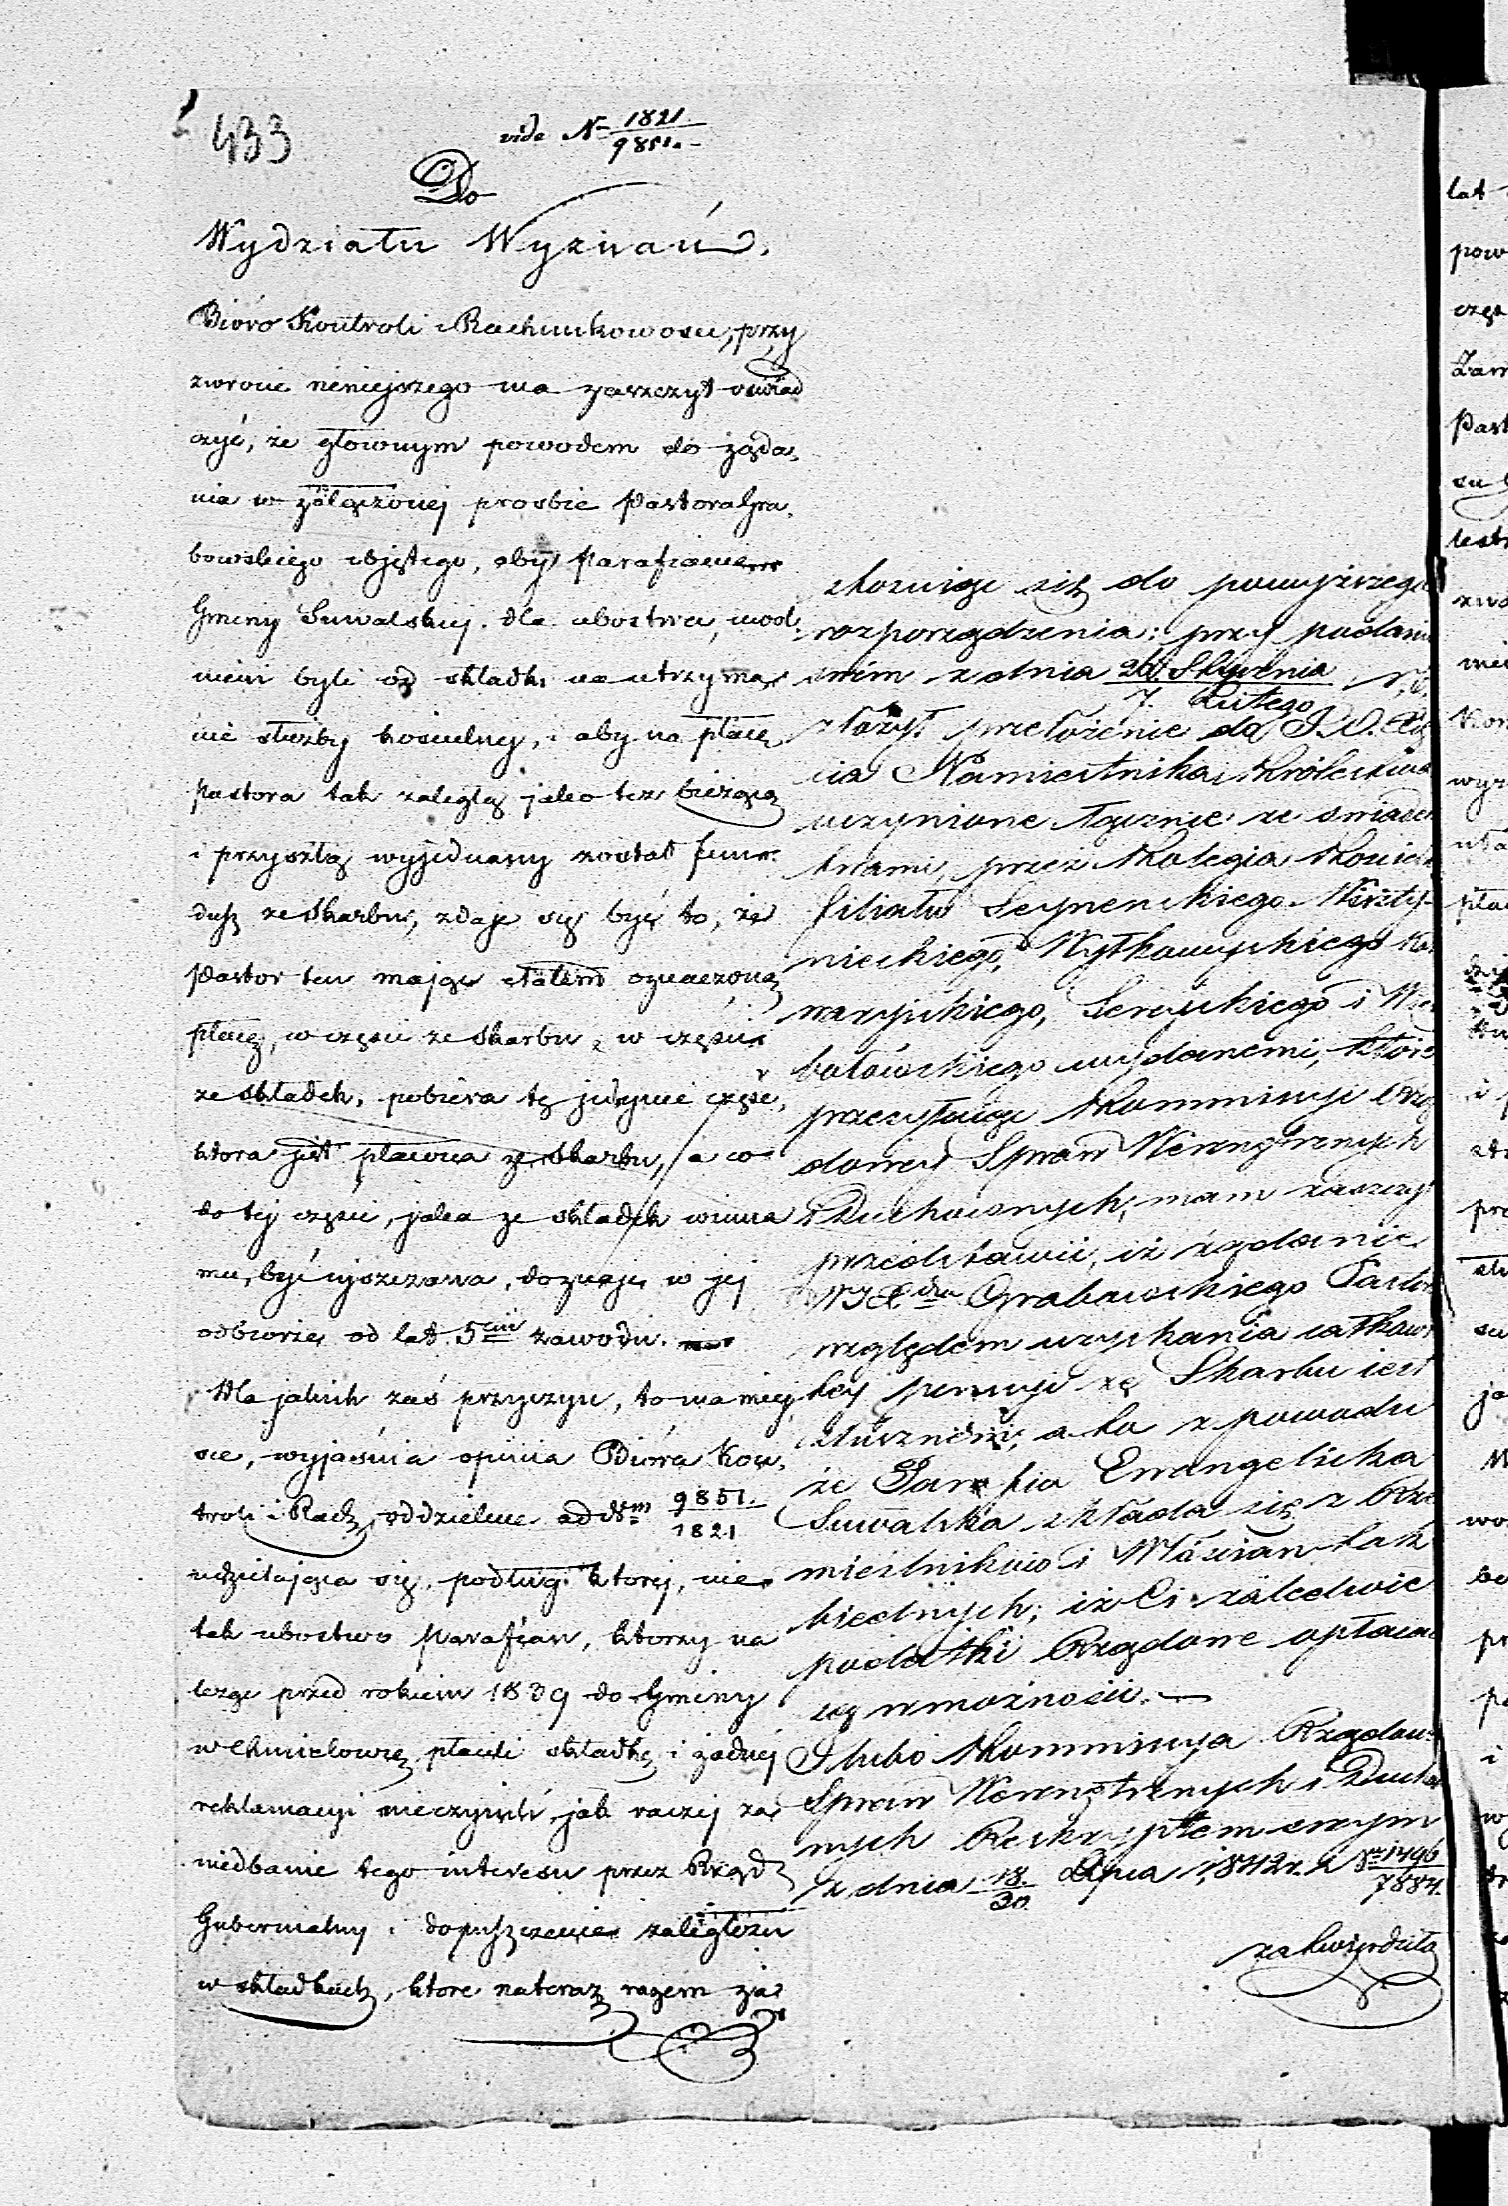 433
vide No 1821/9851
Do
Wydziału Wyznań
Bióro Kontroli i Rachunkowości, przy
zwrocie niniejszego ma zaszczyt oświad
czyć, że głownym powodem do żąda,
nia w załączonej prosbie Pastora Gra,
bowskiego objętego, aby Parafianie
Gminy Suwalskiej dla ubostwa, uwol,
nieni byli od składki na utrzyma,
nie służby kościelney, i aby na płacę
Pastora tak zaległą jako też bieżącą
i przyszłą wyjednany został fun,
dusz ze Skarbu, zdaje się być to, że
Pastor ten mając etatem oznaczoną
płacę, w części ze Skarbu, w części
ze składek, pobiera tę jedynie część,
ktora jest płacona ze Skarbu, a co
do tej części, jaka ze składek winna
mu być uiszczana, doznaje w jej
odbiorze od lat 5ciu zawodu.
Dla jakich zaś przyczyn, to ma miej
sce, wyjaśnia opinia Bióra Kon,
troli i Rach, oddzielnie ad Num 9851/1821
udzielająca się, podług ktorej, nie
tak ubostwo Parafian, ktorzy na
leżąc przed rokiem 1839 do Gminy
w Chmielowce płacili składkę i żadnej
reklamacyi nieczynili, jak raczej za
niedbanie tego interesu przez Rząd
Gubernialny i dopuszczenie zaległości
w składkach, ktore nateraz razem
stosuiąc się do powyższego
rozporządzenia; przy podaniu
swim z dnia 26 Stycznia/7 Lutego
złożył przełożenie do J. O. Xię
cia Namiestnika Królestwa
uczynione łącznie ze swiadec
twami, przez Kolegia Kosciel
filiałów Seynenskiego Wiszty
nieckiego, Wyłkowyskiego Kal
waryiskiego, Sereyskiego i Wier
bołowskiego wydanemi, które
przesyłaiąc Kommissyi Rzą
dowey Spraw Wewnętrznych
i Duchownych, mam zaszczyt
przedstawić, iż żądanie
WJX dza Grabowskiego Pastora
względem uzyskania całkowi
tey pensyi ze Skarbu iest
słusznem, a to z powodu
że Parafia Ewangelicka
Suwalska składa się z Rze
mieslników i Włościan tak
biednych, iż Ci zaledwie
podatki Rządowe opłacać
są w możności.
I lubo Kommissya Rządowa
Spraw Wewnętrznych i Ducho
nych Reskryptem swym
z dnia 18/30 Lipca 1842 r. Nr 1496/7884
zatwierdziła
lat
pow
Zam
Past